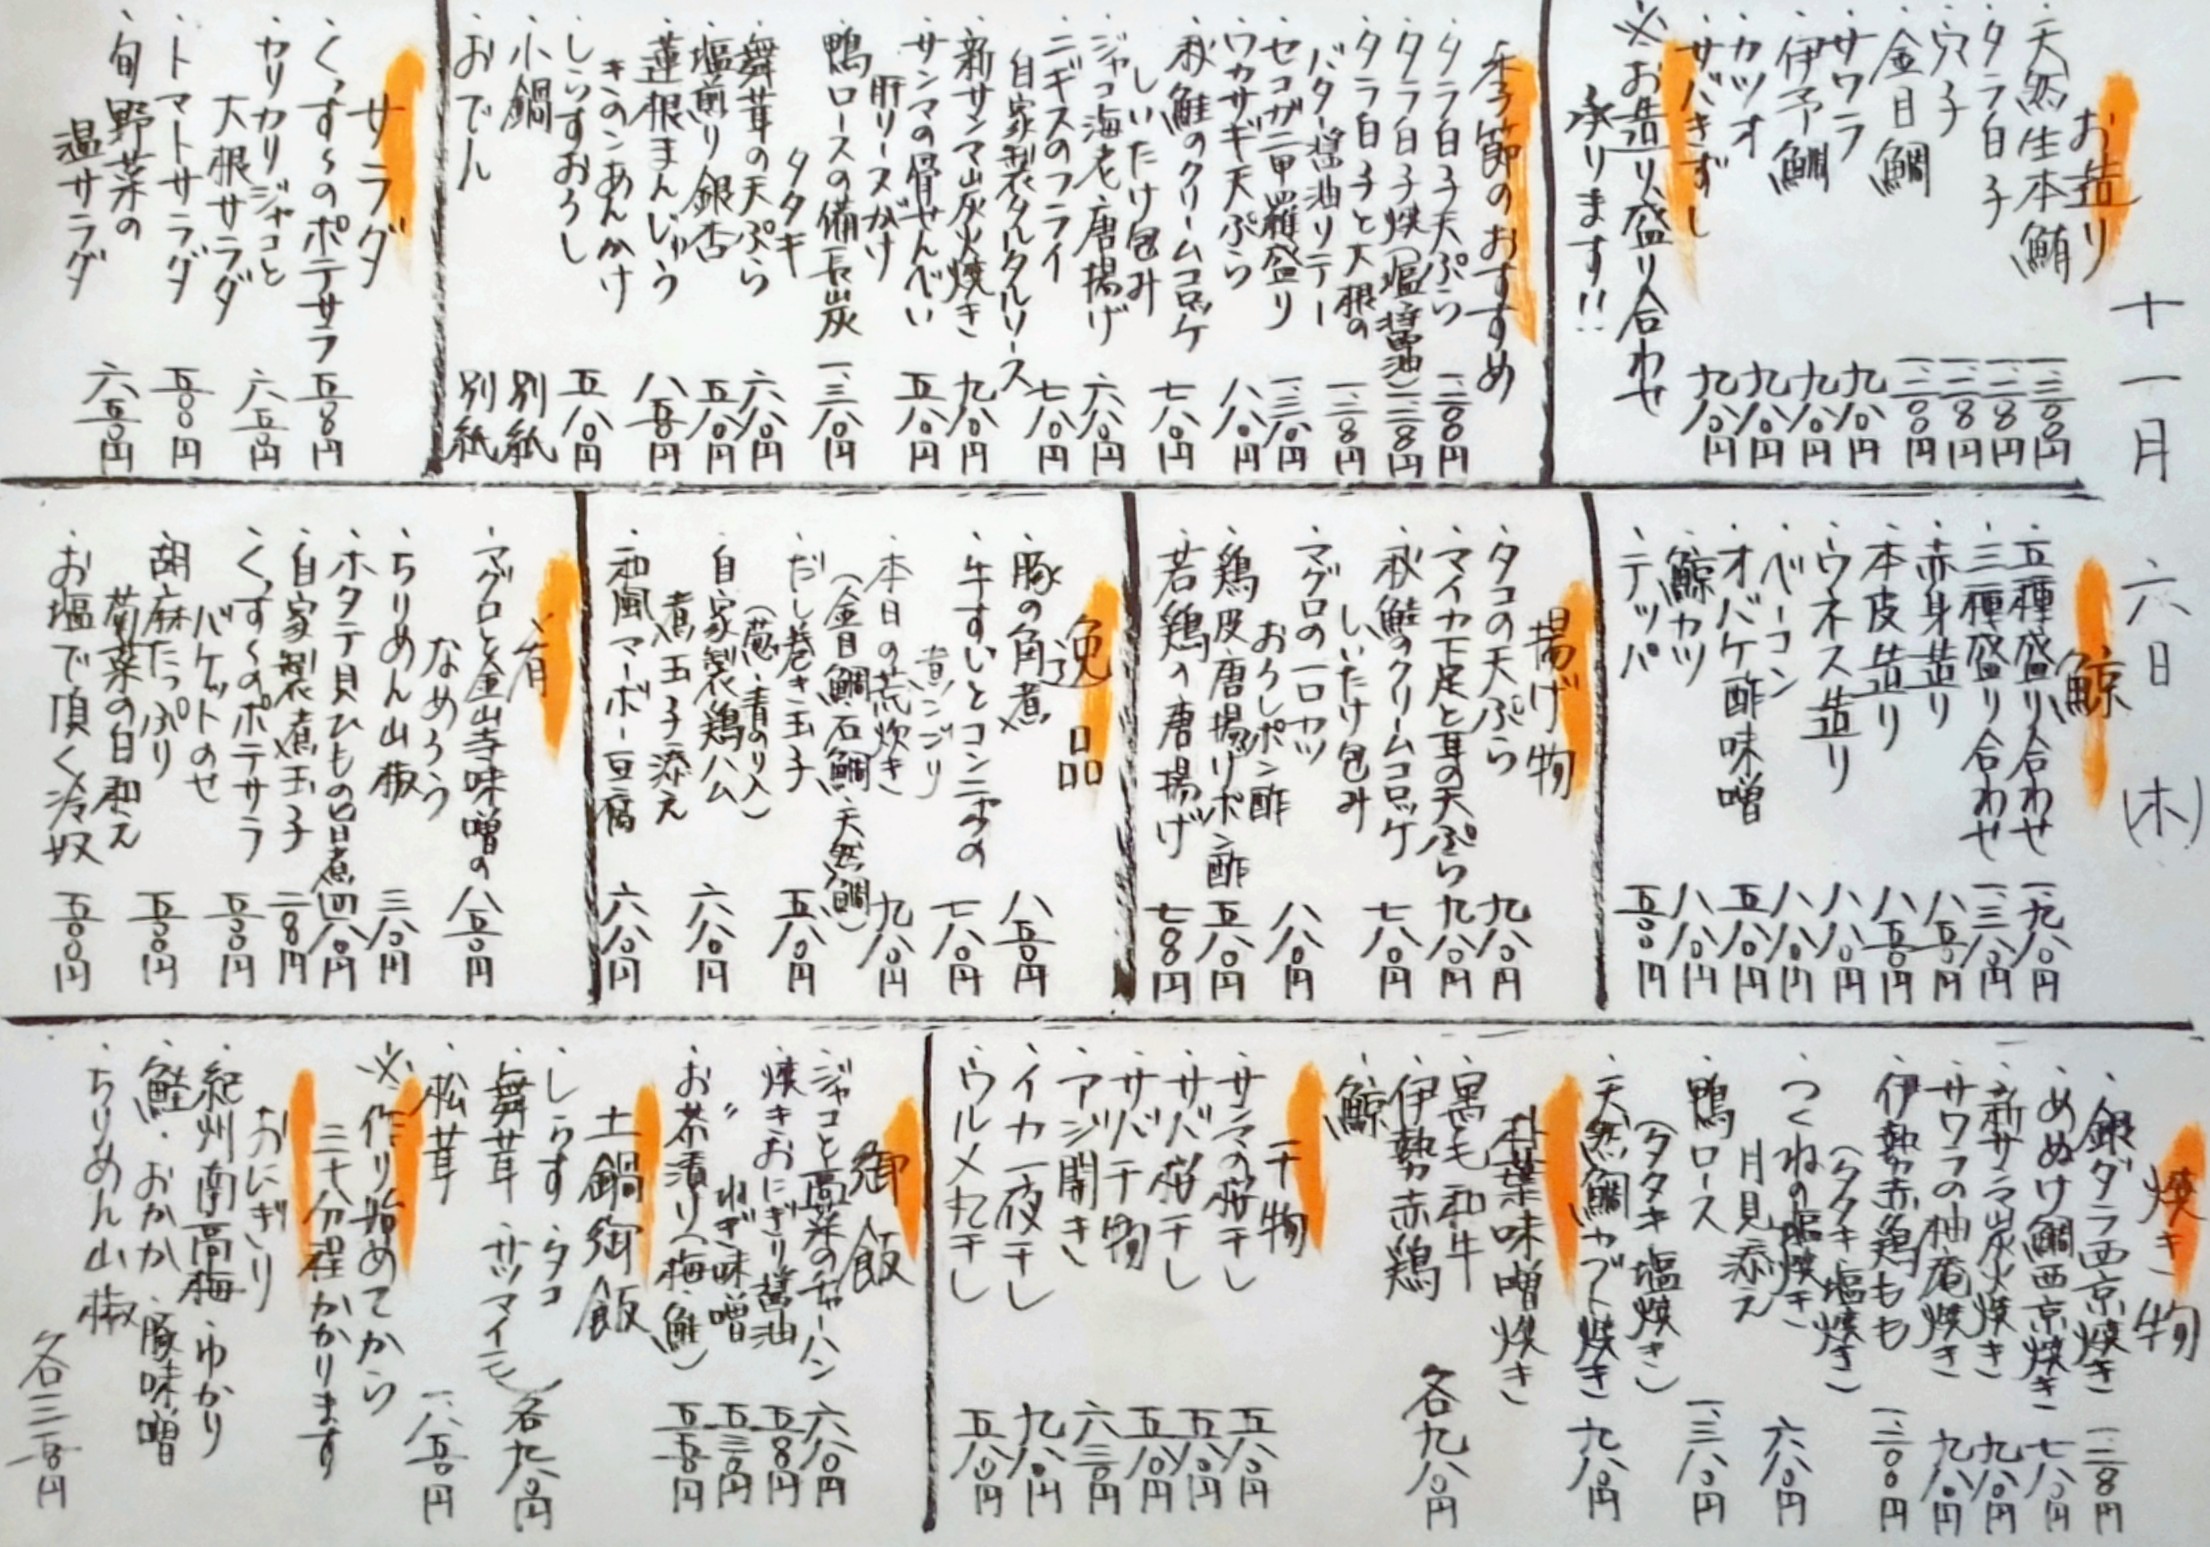 十一月 六日 (木)
お造り
・天然生本鮪 一、三〇〇円
・タラ白子 一、二八〇円
・穴子 一、二八〇円
・金目鯛 一、二〇〇円
・サワラ 九八〇円
・伊予鯛 九八〇円
・カツオ 九八〇円
・サバきずし 九八〇円
※お造り盛り合わせ
承ります!!
季節のおすすめ
・タラ白子天ぷら 一、二八〇円
・タラ白子焼(塩・醤油) 一、二八〇円
・タラ白子と大根の
バター醤油ソテー 一、二八〇円
・セコガニ甲羅盛り 一、三八〇円
・ワカサギ天ぷら 八八〇円
・秋鮭のクリームコロッケ
しいたけ包み 七八〇円
・ジャコ海老唐揚げ 六八〇円
・ニギスのフライ
自家製タルタルソース 七八〇円
・新サンマ炭火焼き 九八〇円
・サンマの骨せんべい
肝ソースがけ 五八〇円
・鴨ロースの備長炭
タタキ 一、三八〇円
・舞茸の天ぷら 六八〇円
・塩煎り銀杏 五八〇円
・蓮根まんじゅう
きのこあんかけ 八五〇円
・しらすおろし 五八〇円
・小鍋 別紙
・おでん 別紙
サラダ
・くっす〜のポテサラ 五八〇円
・カリカリジャコと
大根サラダ 六五〇円
・トマトサラダ 五八〇円
・旬野菜の
温サラダ 六五〇円
鯨
・五種盛り合わせ 一、九八〇円
・三種盛り合わせ 一、三八〇円
・赤身造り 八五〇円
・本皮造り 八五〇円
・ウネス造り 八八〇円
・ベーコン 八八〇円
・オバケ酢味噌 五八〇円
・鯨カツ 八八〇円
・テッパ 五〇〇円
揚げ物
・タコの天ぷら 九八〇円
・マイカ下足と耳の天ぷら 九八〇円
・秋鮭のクリームコロッケ
しいたけ包み 七八〇円
・マグロの一口カツ
おろしポン酢 八八〇円
・鶏皮唐揚げポン酢 五八〇円
・若鶏の唐揚げ 七八〇円
逸品
・豚の角煮 八五〇円
・牛すじとコンニャクの
煮こごり 七八〇円
・本日の荒炊き
(金目鯛・石鯛・天然鯛) 九八〇円
・だし巻き玉子
(葱・青のり入) 五八〇円
・自家製鶏ハム
煮玉子添え 六八〇円
・和風マーボー豆腐 六八〇円
肴
・マグロと金山寺味噌の
なめろう 八五〇円
・ちりめん山椒 三八〇円
・ホタテ貝ひもの旨煮 四八〇円
・自家製煮玉子 二八〇円
・くっす〜のポテサラ
バケットのせ 五五〇円
・胡麻たっぷり
菊菜の白和え 五五〇円
・お塩で頂く冷奴 五五〇円
焼き物
・銀ダラ西京焼き 一、二八〇円
・めぬけ鯛西京焼き 七八〇円
・新サンマ炭火焼き 九八〇円
・サワラの柚庵焼き 九八〇円
・伊勢赤鶏もも
(タタキ・塩焼き) 一、二〇〇円
・つくねの塩焼き
月見添え 六八〇円
・鴨ロース
(タタキ・塩焼き) 一、三八〇円
・天然鯛カブト焼き 九八〇円
朴葉味噌焼き
・黒毛和牛
・伊勢赤鶏
・鯨
各九八〇円
干物
・サンマの桜干し 五八〇円
・サバ桜干し 五八〇円
・サバ干物 五八〇円
・アジ開き 六三〇円
・イカ一夜干し 九八〇円
・ウルメ丸干し 五八〇円
御飯
・ジャコと高菜のチャーハン 六八〇円
・焼きおにぎり醤油 五八〇円
〃 ねぎ味噌 五三〇円
・お茶漬け(梅・鮭) 五五〇円
土鍋御飯
・しらす・タコ
・舞茸・サツマイモ 各九八〇円
・松茸 一、八五〇円
※作り始めてから
三十分程かかります
おにぎり
・紀州南高梅・ゆかり
・鮭・おかか・豚味噌
・ちりめん山椒
各三五〇円